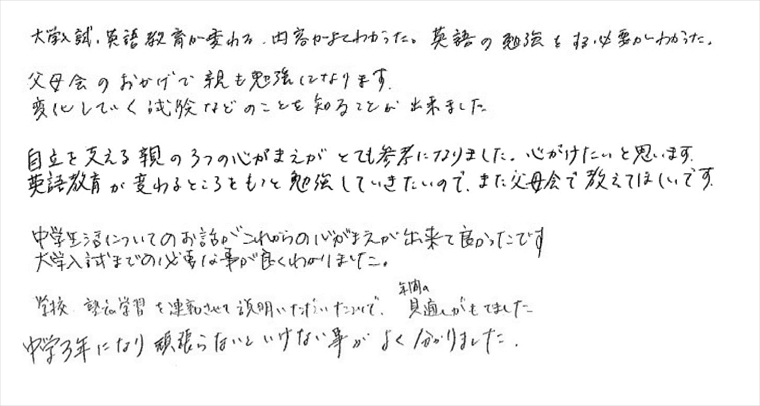 大学入試、英語教育が変わる、内容がよくわかった。英語の勉強をする必要がわかった。
父母会のおかげで親も勉強になります。
変化していく試験などのことを知ることが出来ました
自立を支える親の3つの心がまえがとても参考になりました。心がけたいと思います。
英語教育が変わるところをもっと勉強していきたいので、また父母会で教えてほしいです。
中学生活についてのお話がこれからの心がまえが出来て良かったです
大学入試までの必要な事が良くわかりました。
学校、塾の学習を連動させて説明いただいたので、年間の見通しがもてました
中学3年になり頑張らないといけない事がよく分かりました。